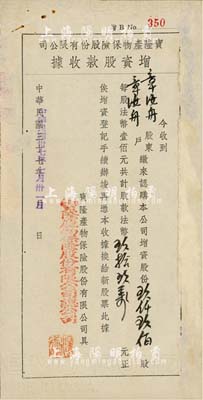 資 B No. 350
寶隆產物保險股份有限公司
增資股款收據
今收到
章渔舟 股東
章渔舟 戶 繳來認購本公司增資股份玖仟玖佰股
每股法幣壹佰元共計股款法幣玖拾玖萬元正
俟增資登記手續辦竣即憑本收據換給新股票此據
隆產物保險股份有限公司具
中華民國三十七年 月廿一日